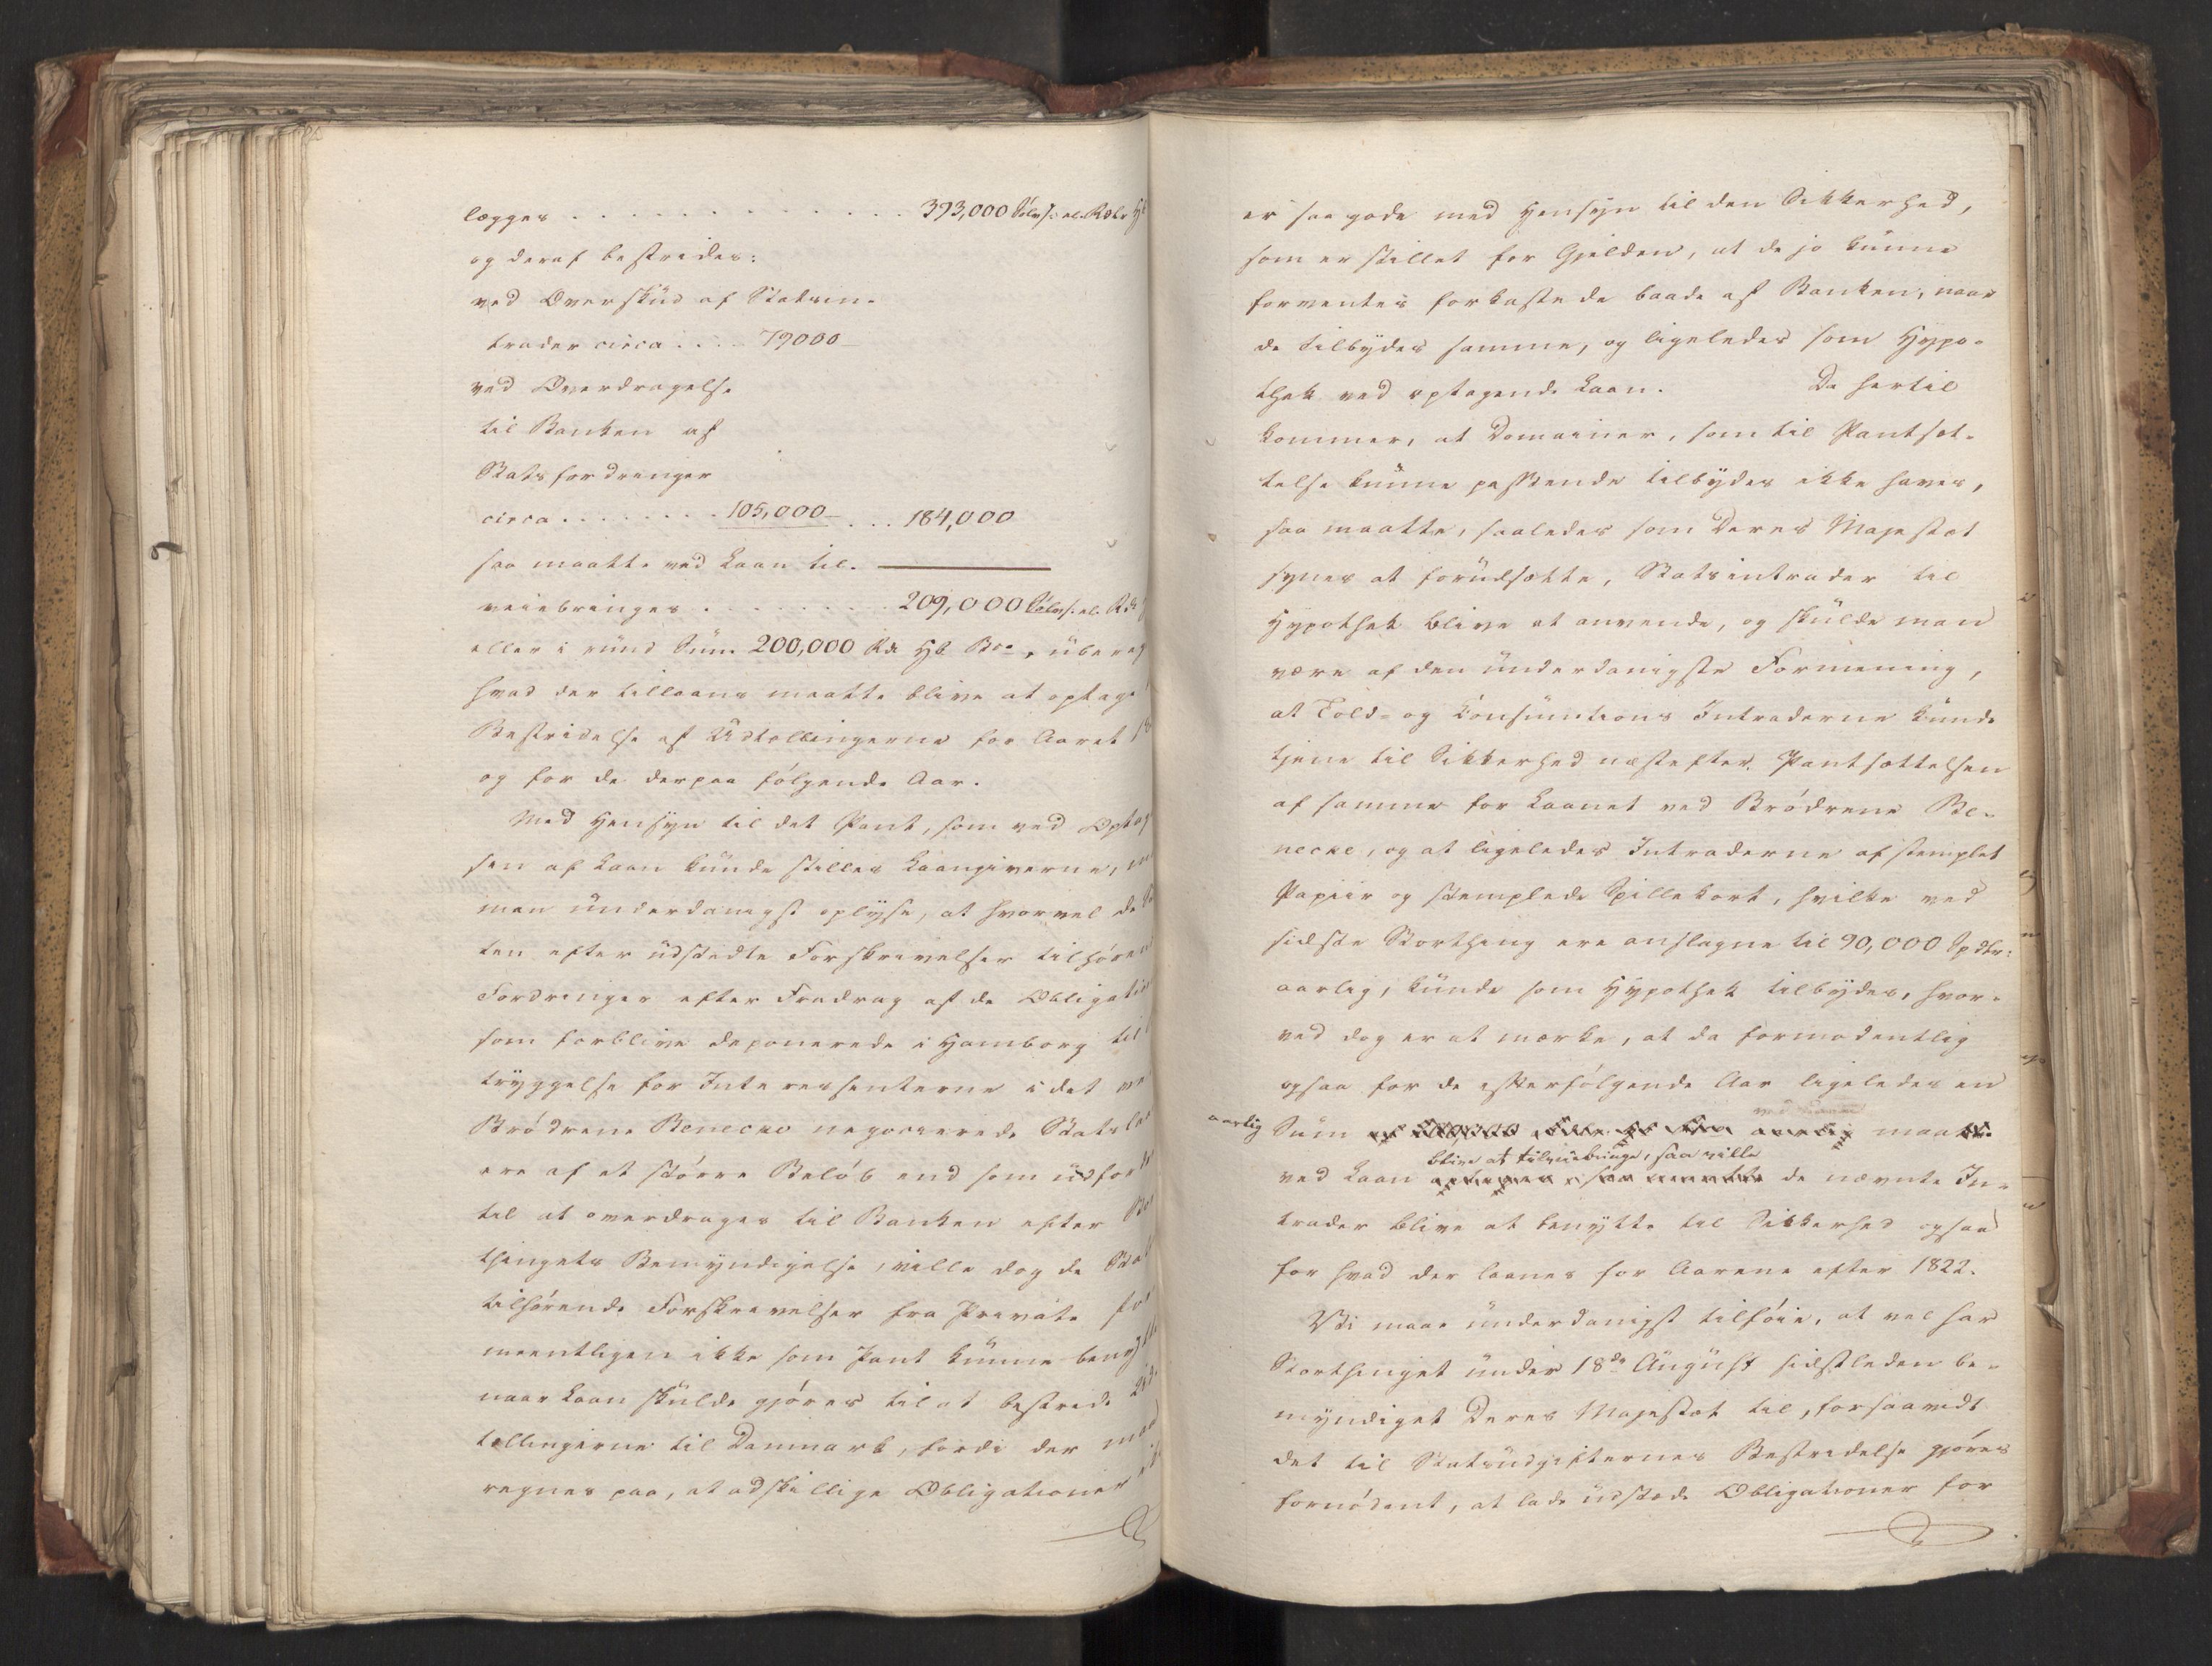 lægges . . . . . . . . . . . . . 393,000 Sølvsp: el. Rdlr Hb
og deraf bestrides:
ved Overskud af Statsin-
trader circa . . . . 79000
ved Overdragelse
til Banken af
Statsfordringer
circa . . . . . . . . 105,000 . . . 184,000
saa maatte ved Laan til-
veiebringes . . . . . . . . . 209,000 Sølvsp: el. Rd
eller i rund Sum 200,000 Rd Hb Bco, ubereg
hvad der tillaans maatte blive at optage
Bestridelse af Udtællingerne for Aaret 18
og for de derpaa følgende Aar.
Med Hensyn til det Pant, som ved Optag
sen af Laan kunde stilles Laangiverne,
man underdanigst oplyse, at hvorvel de
ten efter udstedte Forskrivelser tilhøren
Fordringer efter Fradrag af de Obligatio
som forblive deponerede i Hamborg til
tryggelse for Interessenterne i det ve
Brødrene Benecke negocierede Statslaa
ere af et større Beløb end som udfor
til at overdrages til Banken efter
thingets Bemyndigelse, ville dog de Stat
tilhørende Forskrivelser fra Private for
meentligen ikke som Pant kunne benytte
naar Laan skulde gjøres til at bestride Ud
tællingerne til Danmark, fordi der maa
regnes paa, at adskillige Obligationer
er saa gode med Hensyn til den Sikkerhed,
som er stillet for Gjelden, at de jo kunne
forventes forkastede baade af Banken, naar
de tilbydes samme, og ligeledes som Hypo-
thek ved optagende Laan. Da hertil
kommer, at Domainer, som til Pantsæt-
telse kunne passende tilbydes ikke haves,
saa maatte, saaledes som Deres Majestæt
synes at forudsætte, Statsintrader til
Hypothek blive at anvende, og skulde man
være af den underdanigste Formening,
at Told- og Consumtions Intraderne kunde
tjene til Sikkerhed næstefter Pantsættelsen
af samme for Laanet ved Brødrene Be-
necke, og at ligeledes Intraderne af stemplet
Papiir og stemplede Spillekort, hvilke ved
sidste Storthing ere anslagne til 90,000 Spdlr:
aarlig, kunde som Hypothek tilbydes, hvor-
ved dog er at mærke, at da formodentlig
ogsaa for de efterfølgende Aar ligeledes en
aarlig Sum maatte
blive at tilveiebringe, saa ville
ved Laan de nævnte In-
trader blive at benytte til Sikkerhed ogsaa
for hvad der laanes for Aarene efter 1822.
Vi maae underdanigst tilføie, at vel har
Storthinget under 18de August sidstleden be-
myndiget Deres Majestæt til, forsaavidt
det til Statsudgifternes Bestridelse gjøres
fornødent, at lade udstæde Obligationer for